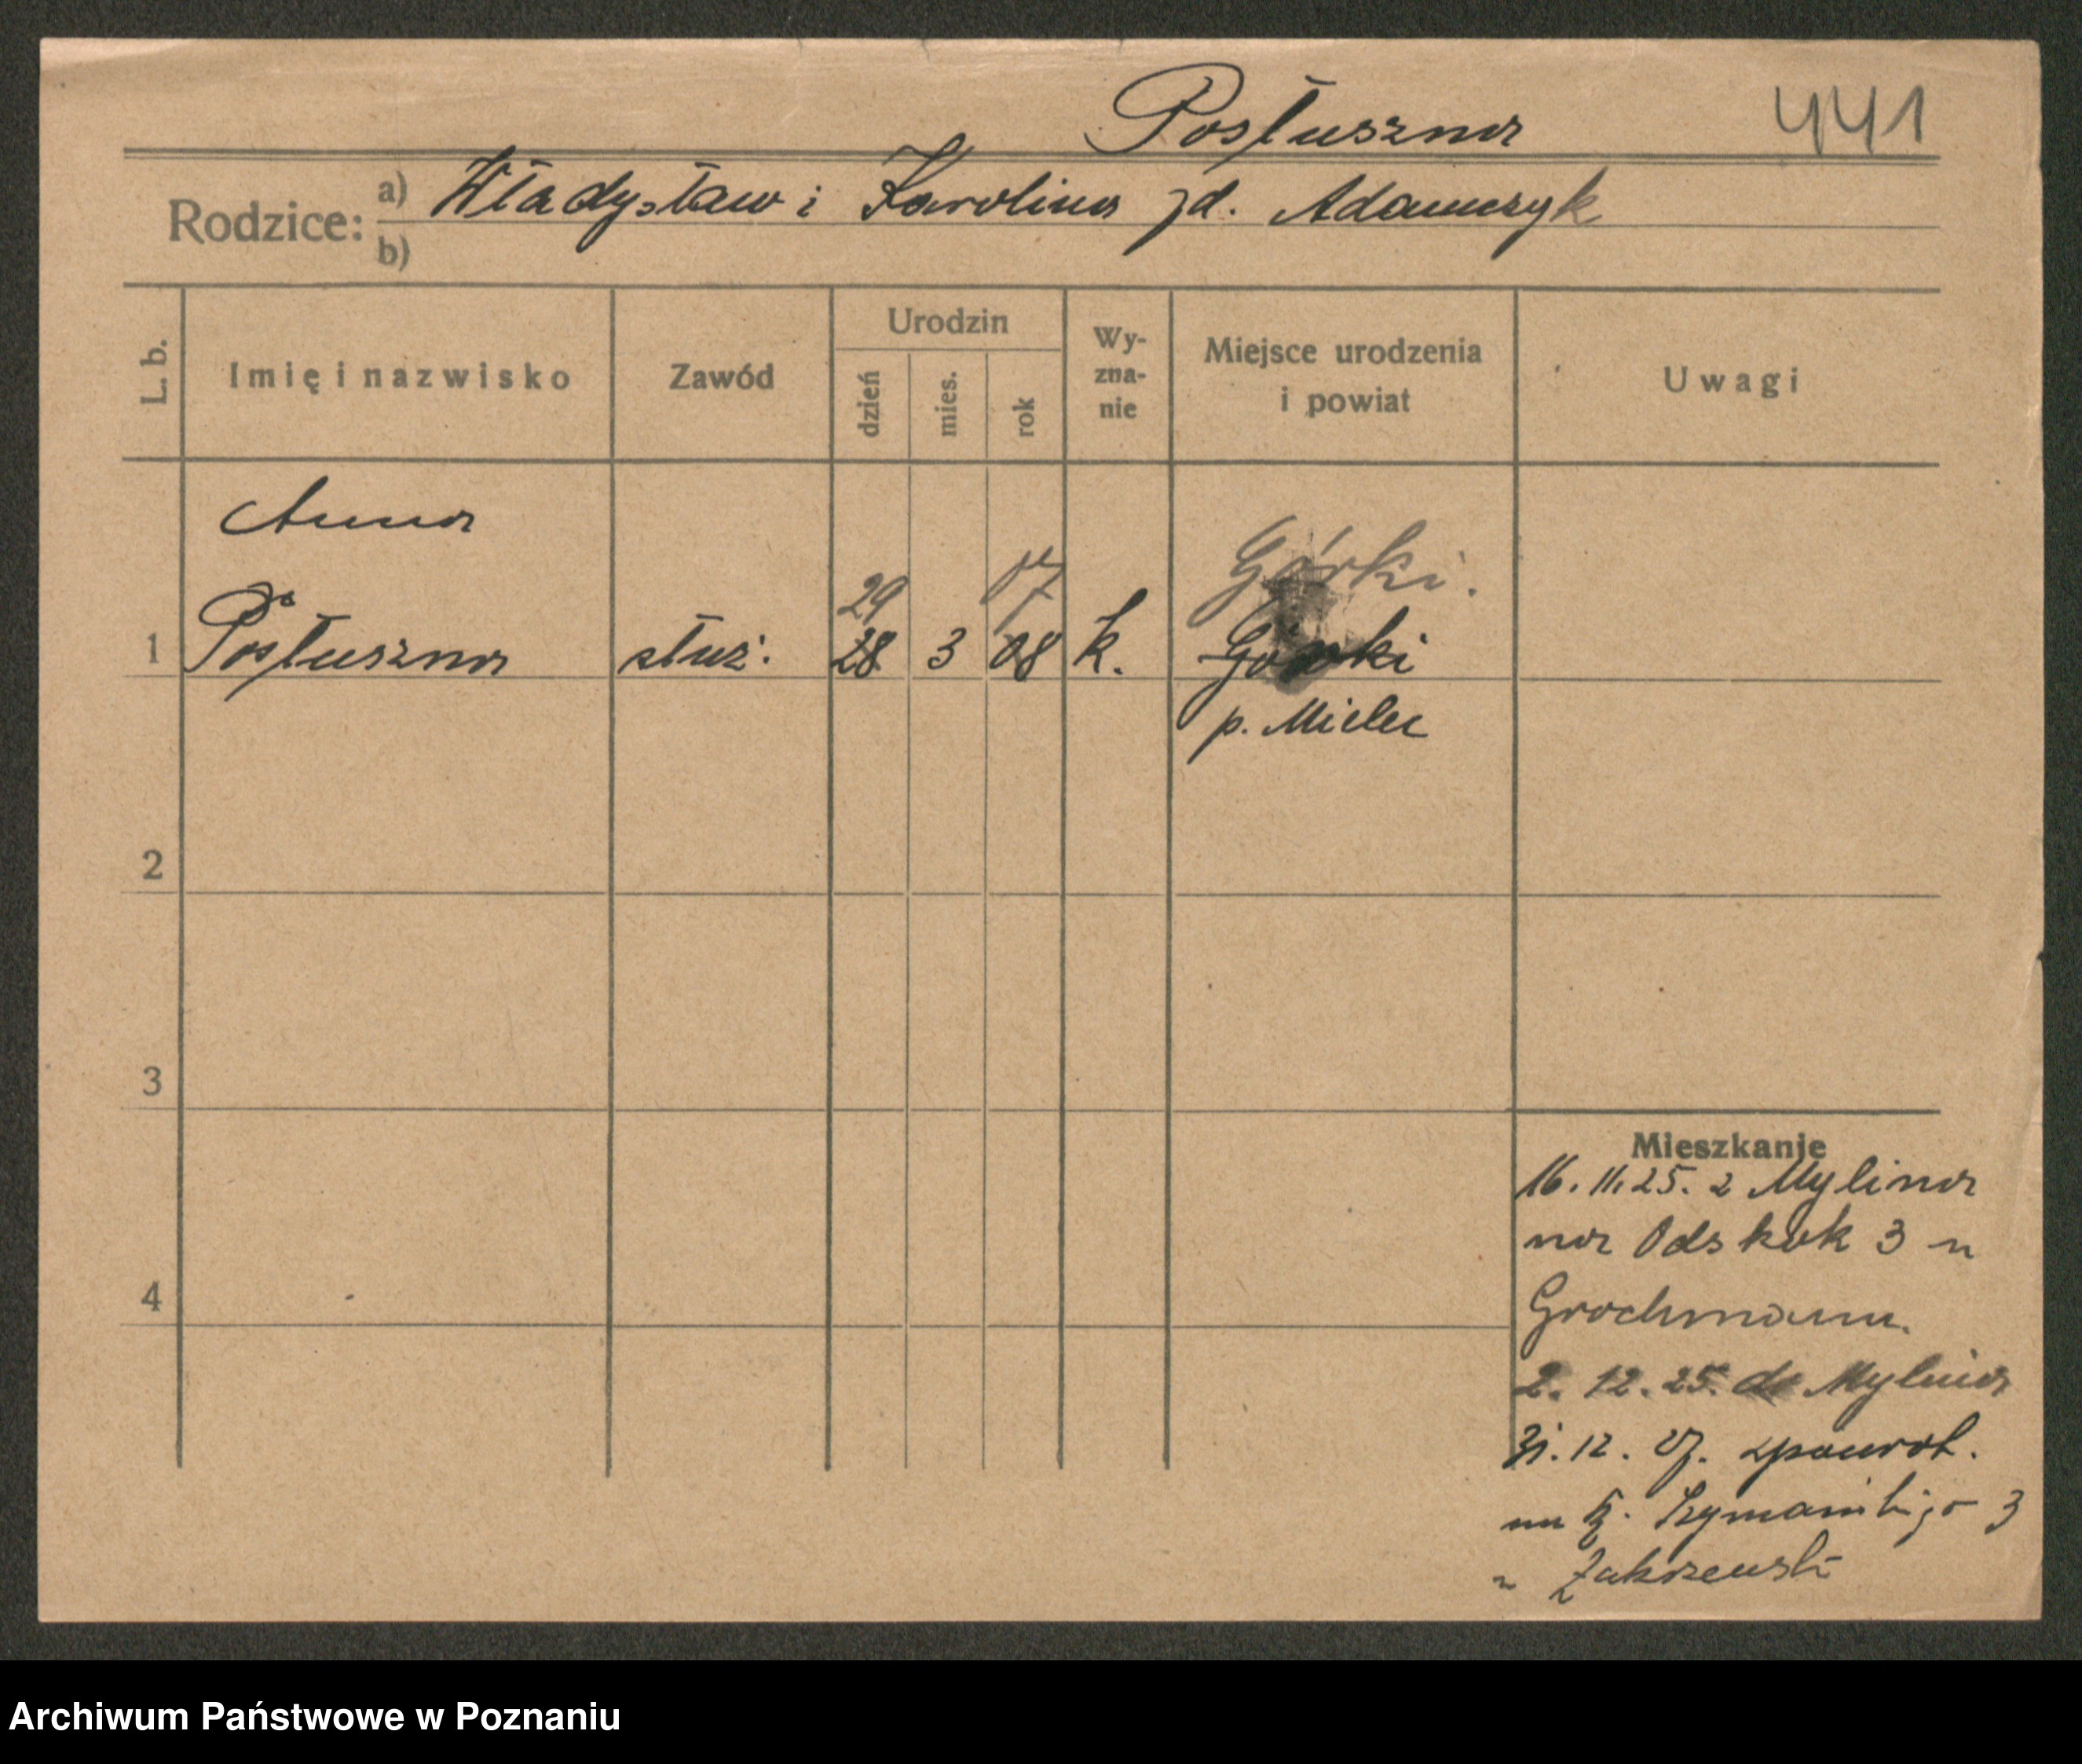 Posłuszna 441
Rodzice: a) Władysław i Karolina zd. Adamczyk
b)
L. b. Imię i nazwisko Zawód Urodzin dzień mies. rok Wy-zna-nie Miejsce urodzenia i powiat Uwagi
Anna
29 07 Górki.
1 Posłuszna służ. 28 3 08 k. Górki
p. Mielec
2
3
Mieszkanie
16. 11. 25. z Mylina
na Odskok 3 u
4
Grochmann.
2. 12. 25. do Mylina
31. 12. 27. zpowrot.
3
Zakrzewski
Archiwum Państwowe w Poznaniu